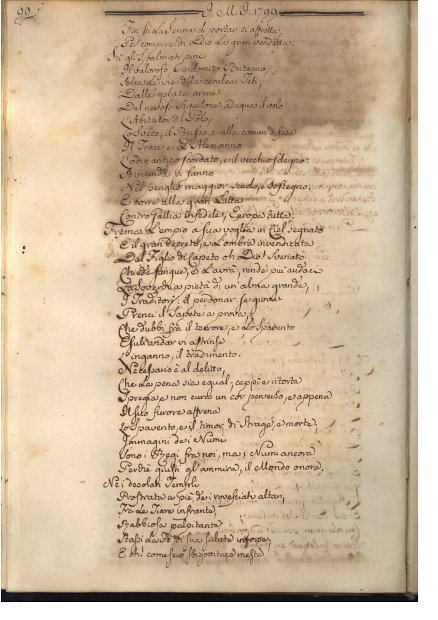 90
A. M. D. 1799
Fin sù la Senna di portar si affretta,
Per compire di Dio la gran Vendetta.
Sù gli spalmati pini
Il valoroso, e indomito Britanno,
Solca le vie della cerulea Teti,
Dalle gelate arene
Del nevoso Aquilone adegua il volo
L'Abitator del Polo,
Lo Sveco, il Russo, e alla comun difesa
Il Trace, e l'Alemanno
L'odio antico scordato, e il vecchio sdegno
A vicenda si fanno
Nel periglio maggior scudo, e sostegno,
E corre alla gran lutta
Contro Gallia infedele, Europa tutta.
Frema l'empio a sua voglia in Ciel segnato
È il gran decreto, e l'ombra invendicata
Del Figlio di Capeto oh Dio! svenato
Chiede sangue, e l'avrà, rende più audace
La soverchia pietà di un'alma grande,
I Traditori; il perdonar se giova
Prenci il sapete a prova,
Che dubbi fra il terrore, e lo spavento
Esuli andar vi astrinse
L'inganno, il tradimento.
Necessario è al delitto,
Che la pena sia egual, ceppi e ritorte
Spregia, e non cura un cor perverso, e appena
Il suo furore affrena
Lo spavento, e il timor di strage, e morte,
Immagini dei Numi
Sono i Regi fra noi, ma i Numi ancora
Perchè giusti gl'ammira, il Mondo onora.
Nei desolati Templi
Prostrata a piè de' rovesciati altari,
Fra le Tiare infrante,
Rabbiosa palpitante
Stassi la Fè di sua salute in forse,
E oh! come seco